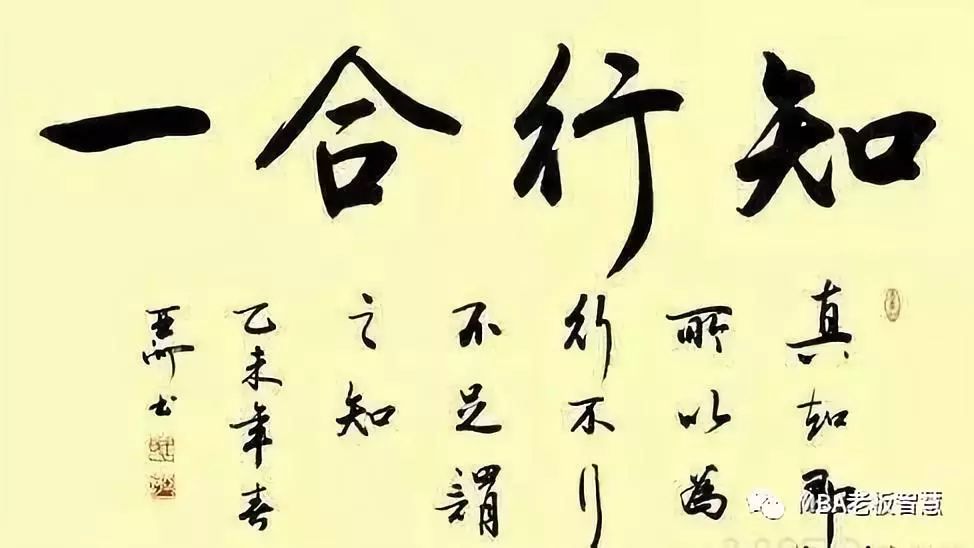 知行合一
真知即
所以為
行不行
不足謂
之知
乙未年春
亚洲书
MBA老板智慧